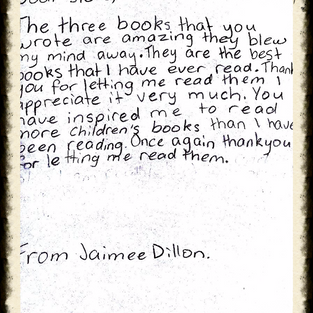 The three books that you
wrote are amazing they blew
my mind away. They are the best
books that I have ever read. Thank
you for letting me read them I
appreciate it very much. You
have inspired me to read
more children's books than I have
been reading. Once again thankyou
for letting me read them.
From Jaimee Dillon.